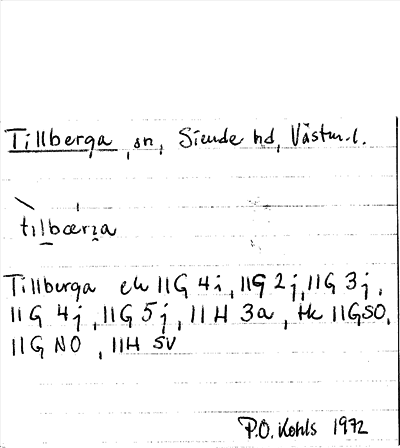 Tillberga, sn, Siende hd, Västm.l.
tilbærja
Tillberga ek 11G 4i, 11G 2j, 11G 3j,
11G 4j, 11G 5j, 11H 3a, tk 11GSO,
11G NO, 11H SV
P.O. Kohls 1972